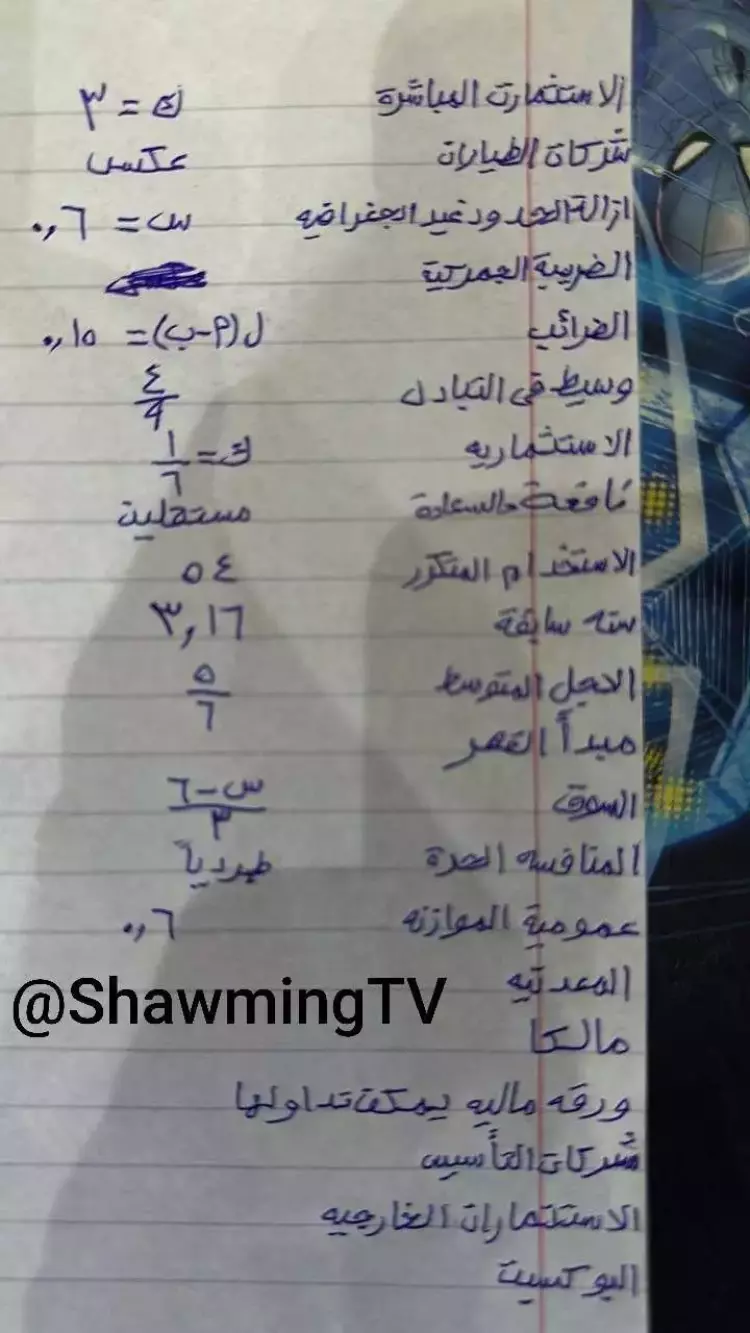 الاستثمارت المباشرة ك = ٣
شركات الطيارات عكسى
ازالة الحدود غير الجغرافيه س = ٠,٦
الضريبة الجمركية
الضرائب ل(م-ب) = ٠,١٥
وسيط فى التبادل ٤/٩
الاستثماريه ك = ١/٦
نافعة بالسعادة مستقلين
الاستخدام المتكرر ٥٤
سنه سابقة ٣,١٦
الاجل المتوسط ٥/٦
مبدأ القهر
السوق س-٦/٣
المنافسه الحرة طردياً
عمومية الموازنه ٠,٦
المعدنيه
@ShawmingTV
مالكا
ورقه ماليه يمكن تداولها
شركات التأسيس
الاستثمارات الخارجيه
البوكسيت